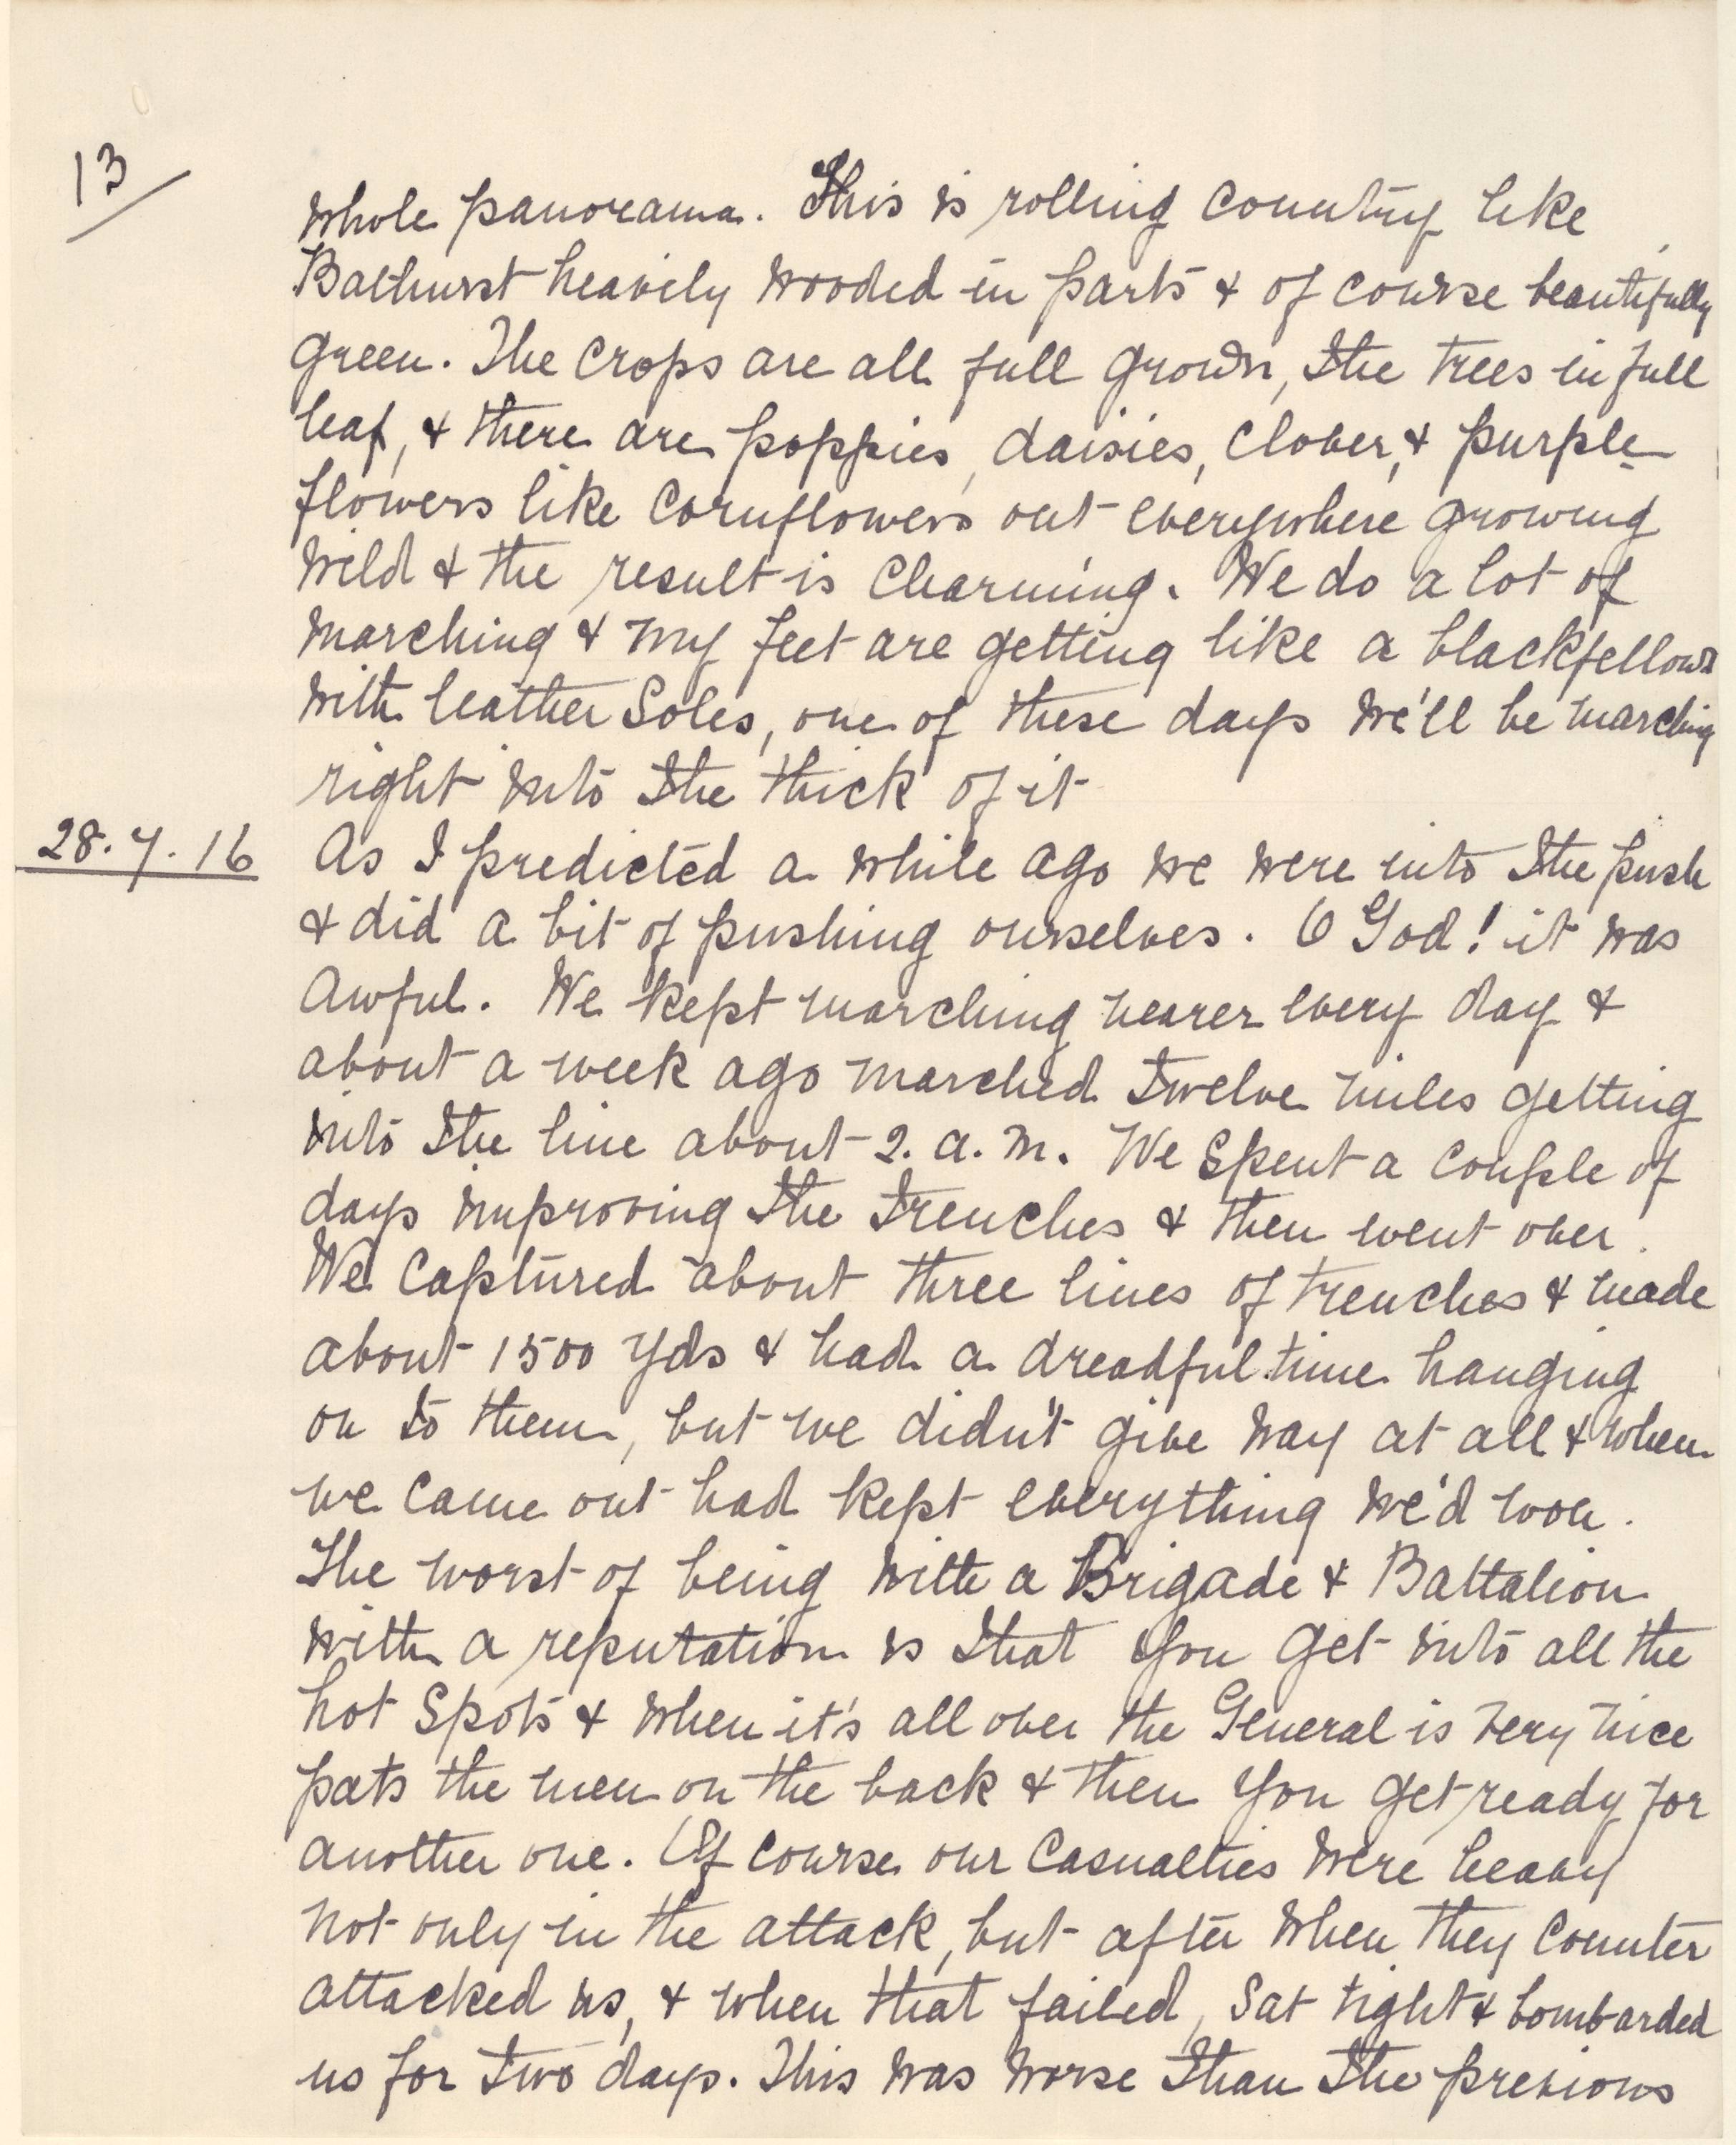 13/
whole panorama. This is rolling country like
Bathurst heavily wooded in parts & of course beautifully
green. The crops are all full grown, the trees in full
leaf, & there are poppies, daisies, clover, & purple
flowers like cornflowers out everywhere growing
wild & the result is charming. We do a lot of
marching & my feet are getting like a blackfellows
with leather soles, one of these days we'll be marching
right into the thick of it
28.7.16 As I predicted a while ago we were into the push
& did a bit of pushing ourselves. O God! it was
awful. We kept marching nearer every day &
about a week ago marched twelve miles getting
into the line about 2. a.m. We spent a couple of
days improving the trenches & then went over.
We captured about three lines of trenches & made
about 1500 yds & had a dreadful time hanging
on to them, but we didn't give way at all & when
we came out had kept everything we'd won.
The worst of being with a Brigade & Battalion
with a reputation is that you get into all the
hot spots & when it's all over the General is very nice
pats the men on the back & then you get ready for
another one. Of course our casualties were heavy
not only in the attack, but after when they counter
attacked us, & when that failed, sat tight & bombarded
us for two days. This was worse than the previous